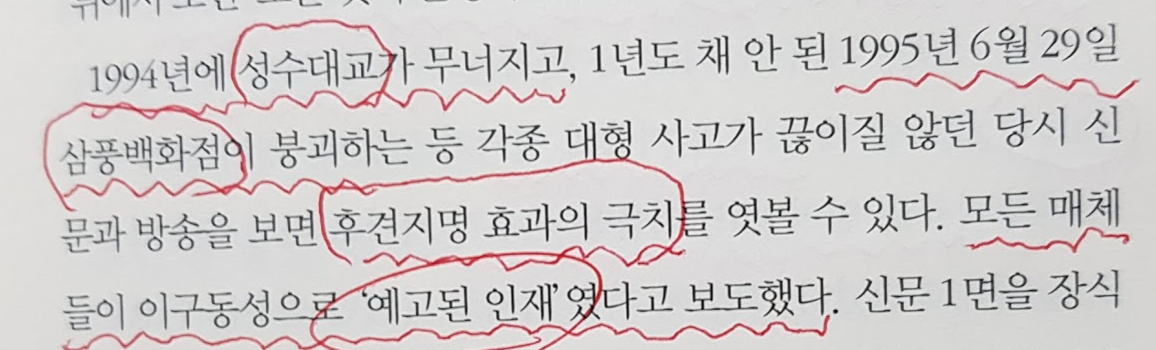 1994년에 성수대교가 무너지고, 1년도 채 안 된 1995년 6월 29일
삼풍백화점이 붕괴하는 등 각종 대형 사고가 끊이질 않던 당시 신
문과 방송을 보면 후견지명 효과의 극치를 엿볼 수 있다. 모든 매체
들이 이구동성으로 ‘예고된 인재’였다고 보도했다. 신문 1면을 장식